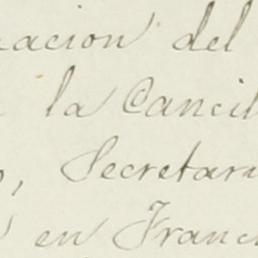 racion del
la Cancil
o, Secretari
en Franci